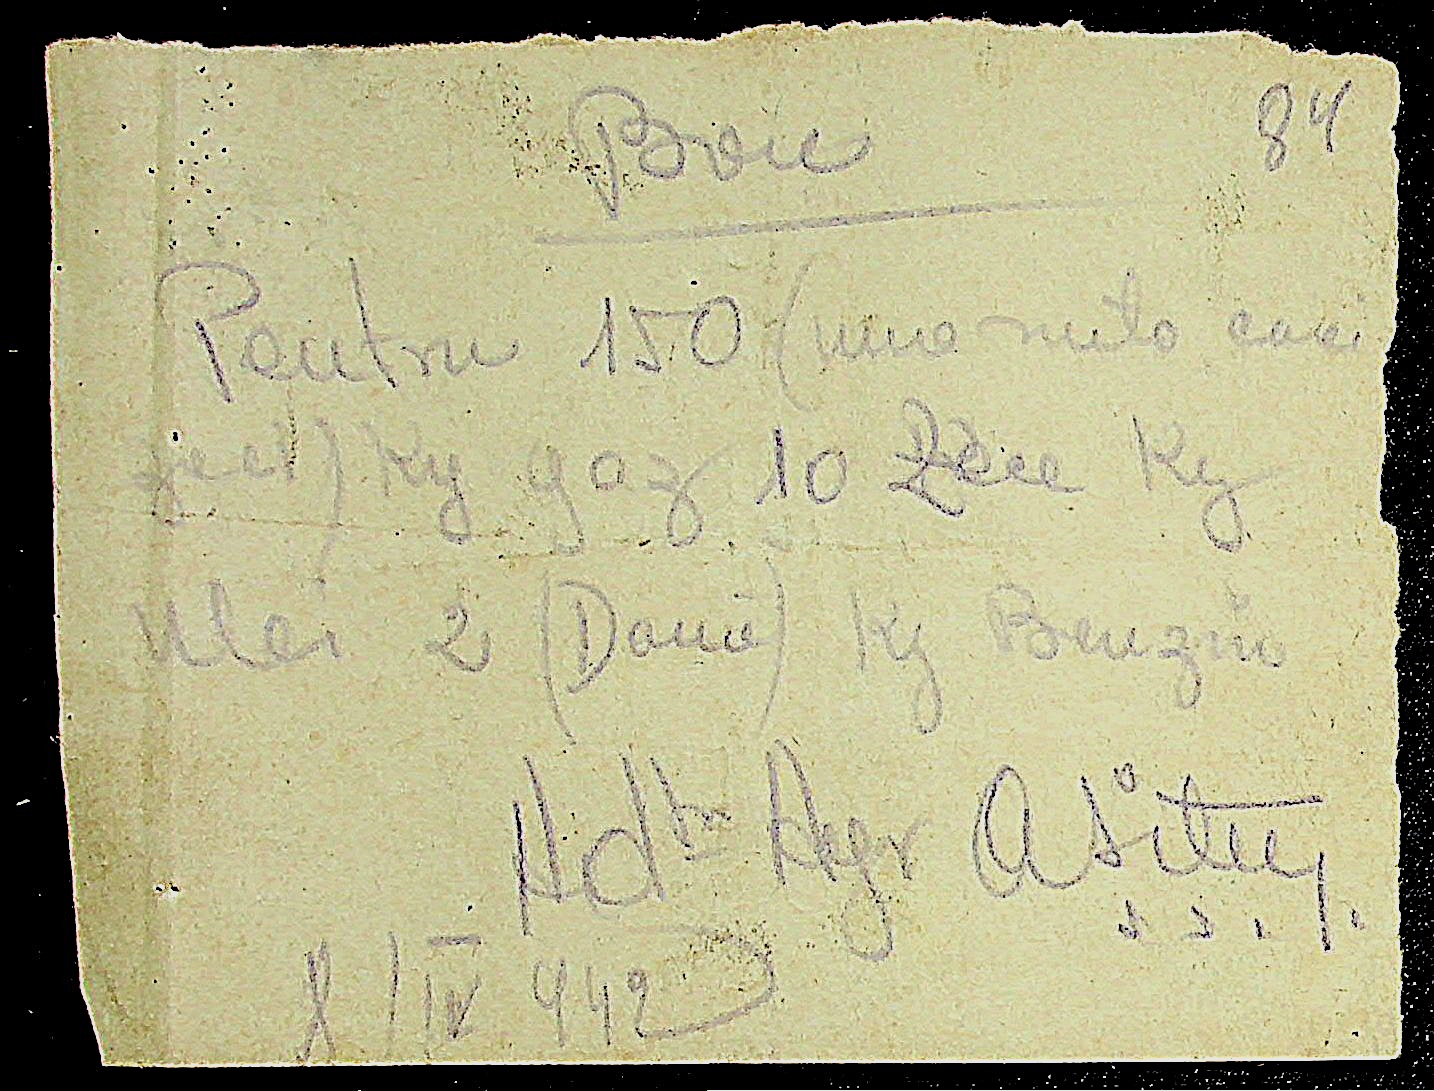 Bon
84
Pentru 150 (una suta cinci
zeci) Kg gaz 10 Zece Kg
Ulei 2 (Doua) Kg Benzina
Agr
8/IV 942